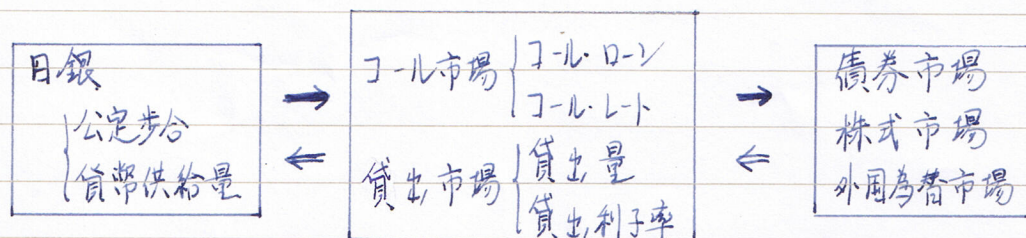 日銀
公定歩合
貨幣供給量
コール市場
コール・ローン
コール・レート
貸出市場
貸出量
貸出利子率
債券市場
株式市場
外国為替市場